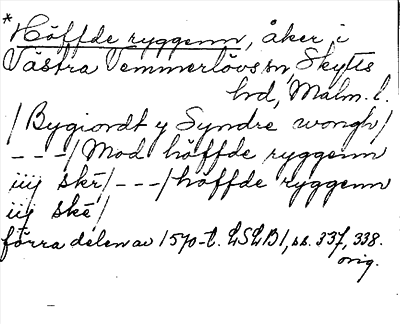 *Höffde ryggenn, åker i
Västra Vemmerlövs sn, Skytts
hd, Malm. l.
/Bygiordt y Syndre wongh/
---/Mod höffde ryggenn
iiij skē/---/höffde ryggenn
iij skē/
förra delen av 1570-t. LSLB1, ss. 337, 338.
orig.